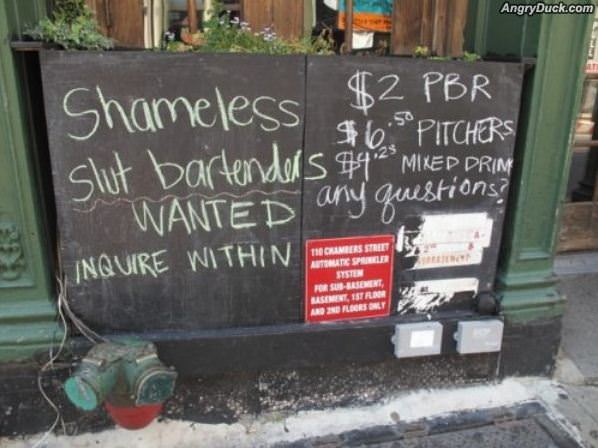 AngryDuck.com
Shameless
slut bartenders
WANTED
INQUIRE WITHIN
$2 PBR
$6.50 PITCHERS
$4.25 MIXED DRINK
any questions?
110 CHAMBERS STREET
AUTOMATIC SPRINKLER
SYSTEM
FOR SUB-BASEMENT,
BASEMENT, 1ST FLOOR
AND 2ND FLOORS ONLY